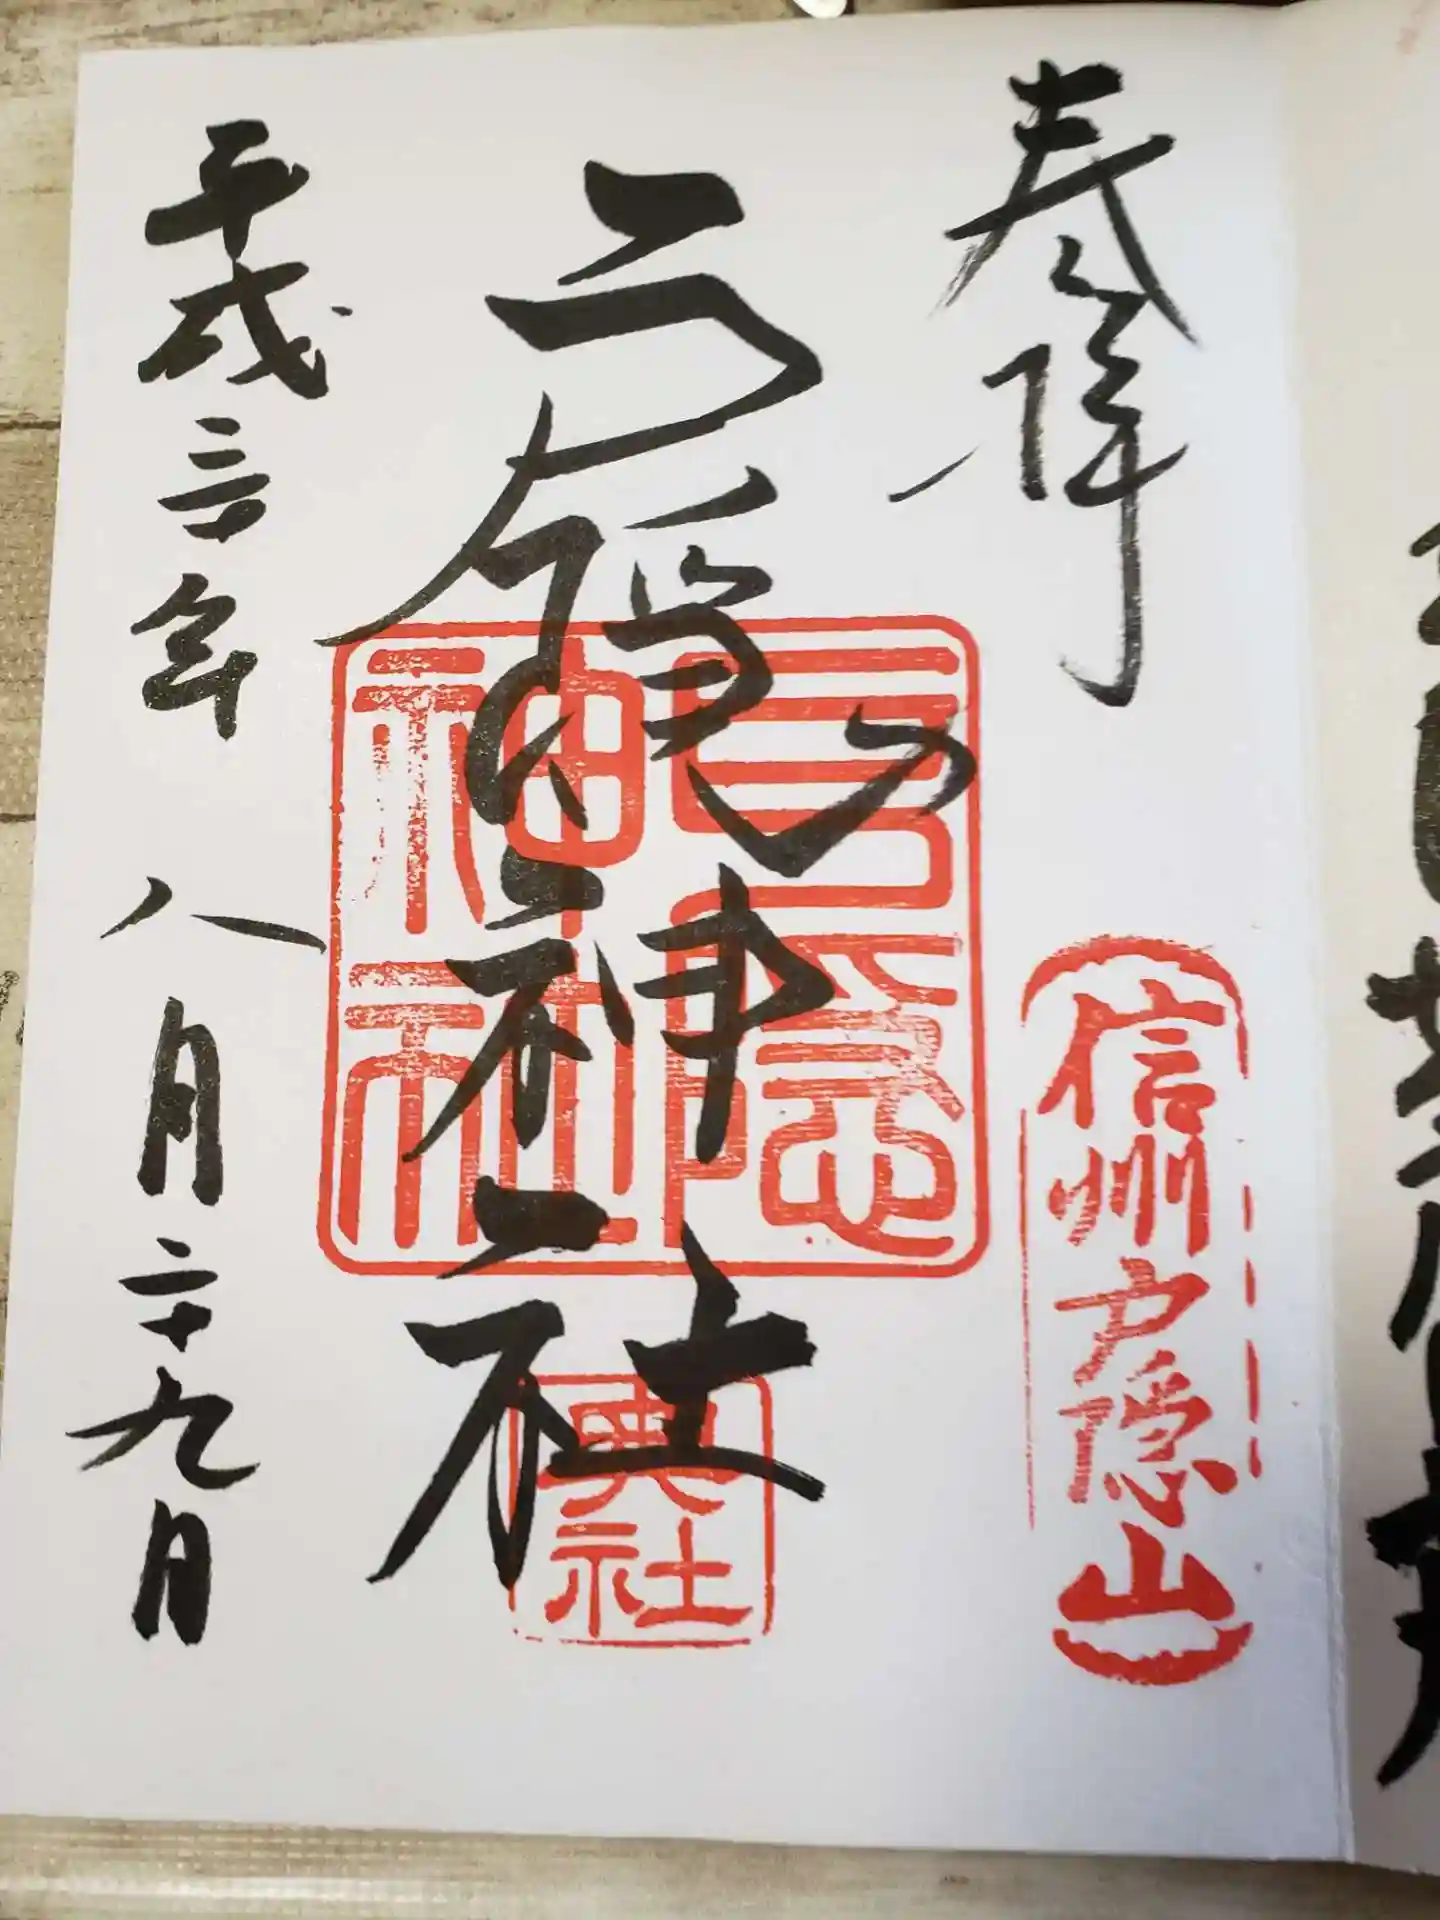 奉拝
信州戸隠山
戸隠神社
戸隠神社
奥社
平成三十年八月二十九日